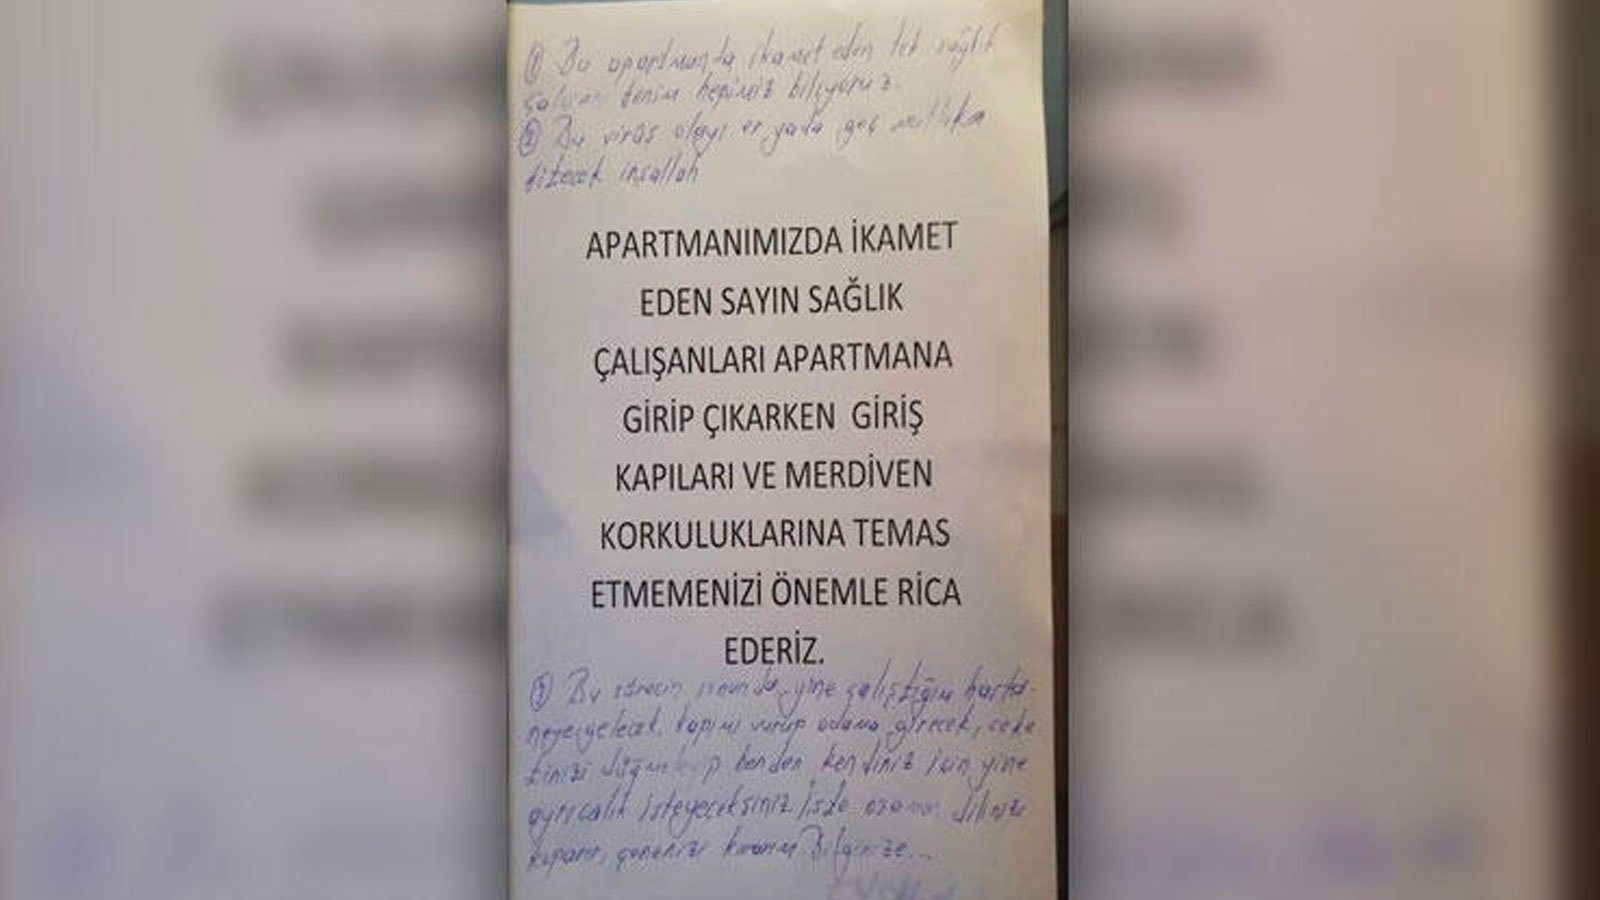 ① Bu apartmanda ikamet eden tek sağlık
çalışanı benim hepimiz biliyoruz.
② Bu virüs olayı er yada geç mutlaka
bitecek inşallah
APARTMANIMIZDA İKAMET
EDEN SAYIN SAĞLIK
ÇALIŞANLARI APARTMANA
GİRİP ÇIKARKEN GİRİŞ
KAPILARI VE MERDİVEN
KORKULUKLARINA TEMAS
ETMEMENİZİ ÖNEMLE RİCA
EDERİZ.
③ Bu sürecin sonunda, yine çalıştığım hasta-
neye gelecek, kapımı vurup odama girecek, ceke
tinizi düğmeleyip benden kendiniz için yine
ayrıcalık isteyeceksiniz. İşte o zaman dilinizi
koparır, çenenizi kırarım Bilginize...